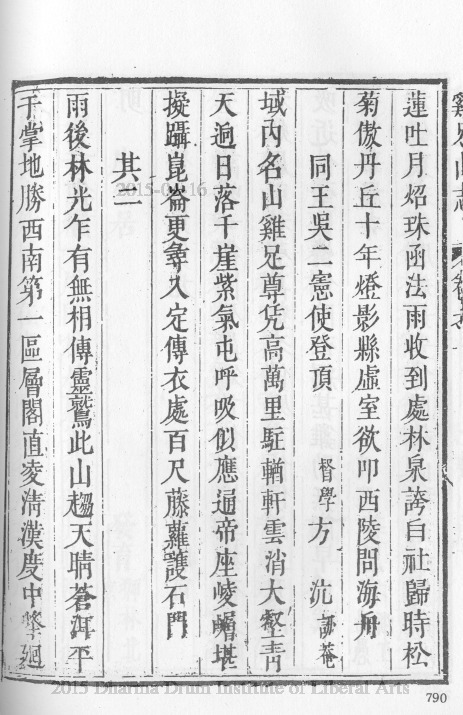 雞足山志
蓮吐月炤珠函法雨收到處林泉誇白社歸時松
菊傲丹丘十年燈影縣虛室欲叩西陵問海舟
同王吳二憲使登頂 督學方 沆 訒菴
域內名山雞足尊凭高萬里駐輶軒雲消大壑青
天逈日落千崖紫氣屯呼吸似應通帝座崚嶒堪
擬躡崑崙更尋入定傳衣處百尺藤蘿護石門
其二
雨後林光乍有無相傳靈鷲此山趨天晴蒼洱平
于掌地勝西南第一區層閣直凌清漢度中峯廻
2015 Dharma Drum Institute of Liberal Arts
790